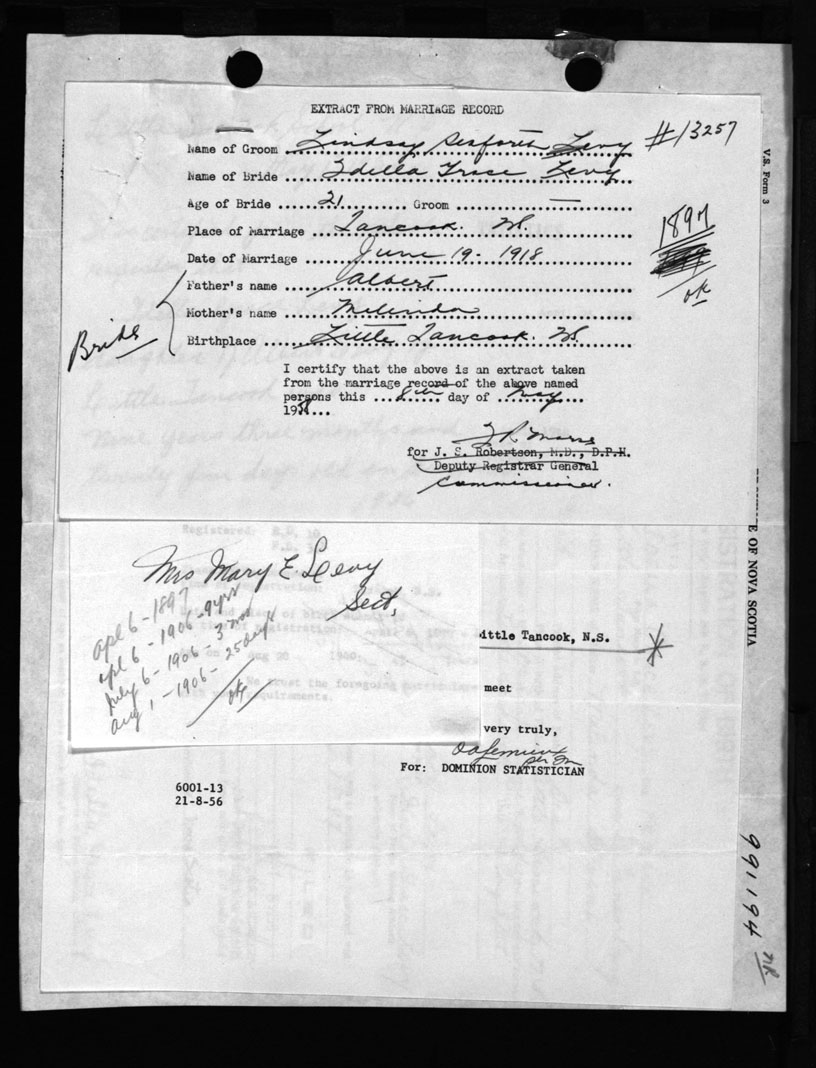 EXTRACT FROM MARRIAGE RECORD
#13257
Name of Groom Lindsay Seaforth Levy
Name of Bride Idella Grace Levy
Age of Bride 21 Groom —
Place of Marriage Tancook. NS.
Date of Marriage June 19 - 1918
1897
ok
Father's name Albert
Mother's name Melinda
Birthplace Little Tancook. NS.
Bride
I certify that the above is an extract taken
from the marriage record of the above named
persons this 8th day of May
19
for J. S. Robertson, M.D., D.P.H.
Deputy Registrar General
Commissioner.
Mrs Mary E Levy
Sect,
apl 6 - 1897
apl 6 - 1906 - 9 yrs
July 6 - 1906 - 3 mos
aug 1, - 1906 - 25 days
ok
ittle Tancook, N.S.
meet
very truly,
For: DOMINION STATISTICIAN
6001-13
21-8-56
V.S. Form 3
E OF NOVA SCOTIA
991194